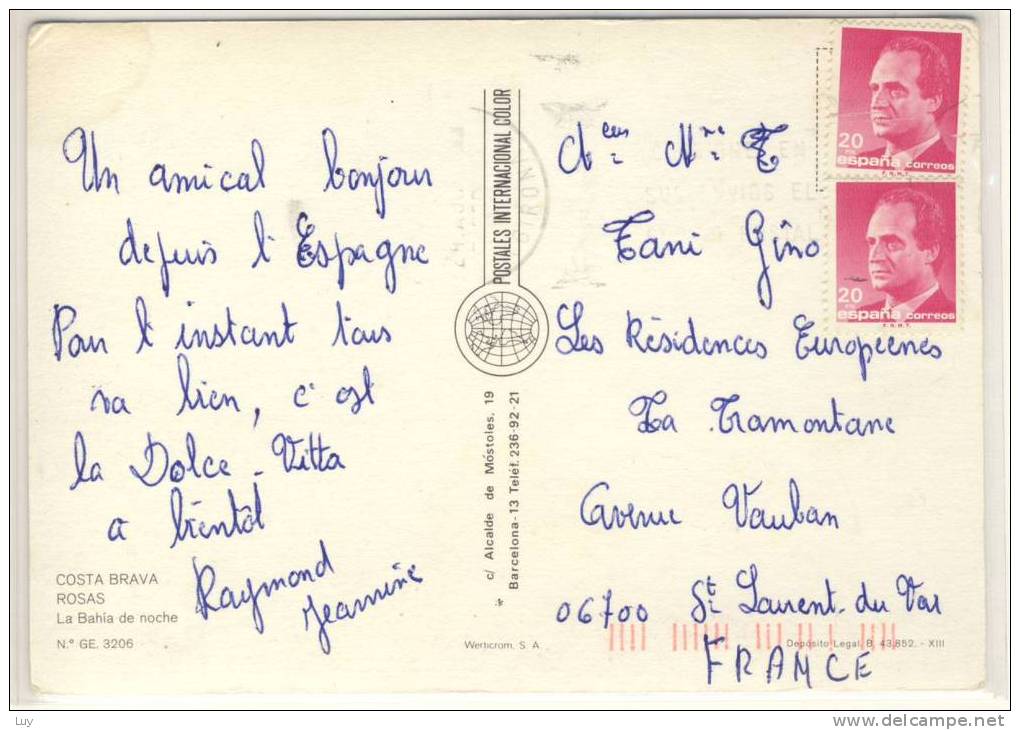 Un amical bonjour
depuis l'Espagne
Pour l'instant tous
va bien, c'est
la Dolce-Vitta
a bientôt
Raymond
Jeannine
COSTA BRAVA
ROSAS
La Bahía de noche
N.º GE. 3206
POSTALES INTERNACIONAL COLOR
c/ Alcalde de Móstoles, 19
Barcelona-13 Teléf. 236-92-21
Werticrom, S. A.
Depósito Legal, B. 43,852. - XIII
20
españa correos
F.N.M.T.
20
españa correos
F.N.M.T.
Mme
Tani Gino
Les Résidences Européenes
La Tramontane
Avenue Vauban
06700 St Laurent-du Var
FRANCE
Luy
www.delcampe.net